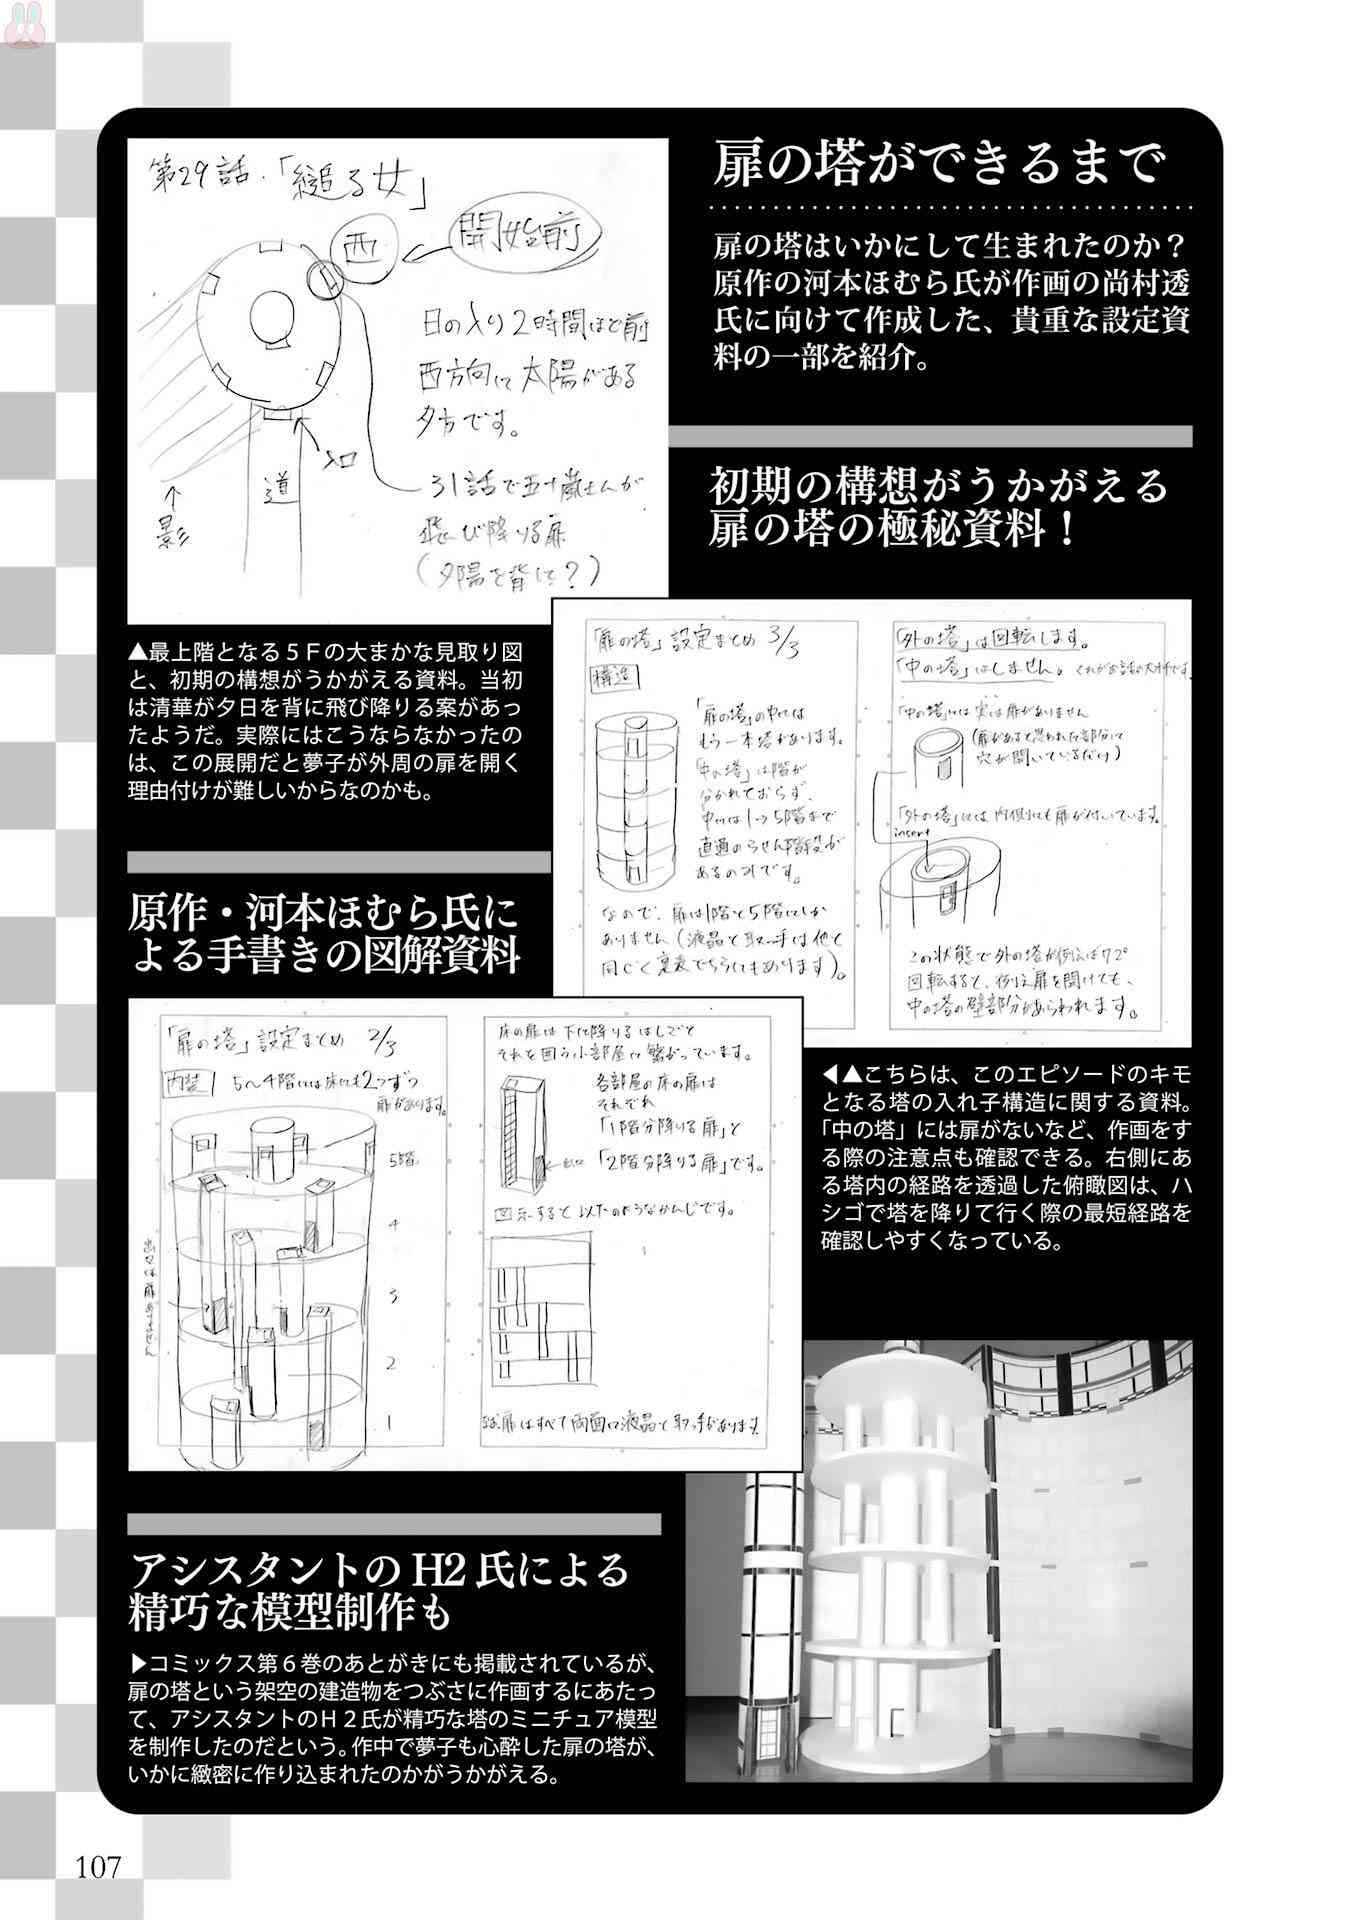 扉の塔ができるまで
扉の塔はいかにして生まれたのか？
原作の河本ほむら氏が作画の尚村透
氏に向けて作成した、貴重な設定資
料の一部を紹介。
第29話.「縋る女」
西
開始前
日の入り2時間ほど前
西方向に太陽がある
夕方です。
31話で五十嵐さんが
飛び降りる扉
(夕陽を背に?)
入口
道
↑
影
初期の構想がうかがえる
扉の塔の極秘資料！
▲最上階となる５Ｆの大まかな見取り図
と、初期の構想がうかがえる資料。当初
は清華が夕日を背に飛び降りる案があっ
たようだ。実際にはこうならなかったの
は、この展開だと夢子が外周の扉を開く
理由付けが難しいからなのかも。
「扉の塔」設定まとめ 3/3
構造
「扉の塔」の中には
もう一本塔があります。
「中の塔」は階が
分かれておらず、
中には1→5階まで
直通のらせん階段が
あるのみです。
なので、扉は1階と5階にしか
ありません(液晶と取っ手は他と
同じく裏表でちらにもあります)。
「外の塔」は回転します。
「中の塔」はしません。
「中の塔」には実は扉がありません
(扉があると思われた部分に
穴が開いているだけ)
「外の塔」には内側にも扉が付いています。
insert
この状態で外の塔が例えば72°
回転すると、例え扉を開けても、
中の塔の壁部分があらわれます。
原作・河本ほむら氏に
よる手書きの図解資料
「扉の塔」設定まとめ 2/3
内装
5～4階には床にも2つずつ
扉があります。
5階
4
3
2
1
出口は扉ありません
床の扉は下に降りるはしごと
それを囲う小部屋に繋がっています。
各部屋の床の扉は
それぞれ
「1階分降りる扉」と
「2階分降りる扉」です。
出口
図示すると以下のようなかんじです。
扉はすべて両面に液晶と取っ手があります
◀▲こちらは、このエピソードのキモ
となる塔の入れ子構造に関する資料。
「中の塔」には扉がないなど、作画をす
る際の注意点も確認できる。右側にあ
る塔内の経路を透過した俯瞰図は、ハ
シゴで塔を降りて行く際の最短経路を
確認しやすくなっている。
アシスタントのH2氏による
精巧な模型制作も
▶コミックス第６巻のあとがきにも掲載されているが、
扉の塔という架空の建造物をつぶさに作画するにあたっ
て、アシスタントのＨ２氏が精巧な塔のミニチュア模型
を制作したのだという。作中で夢子も心酔した扉の塔が、
いかに緻密に作り込まれたのかがうかがえる。
107